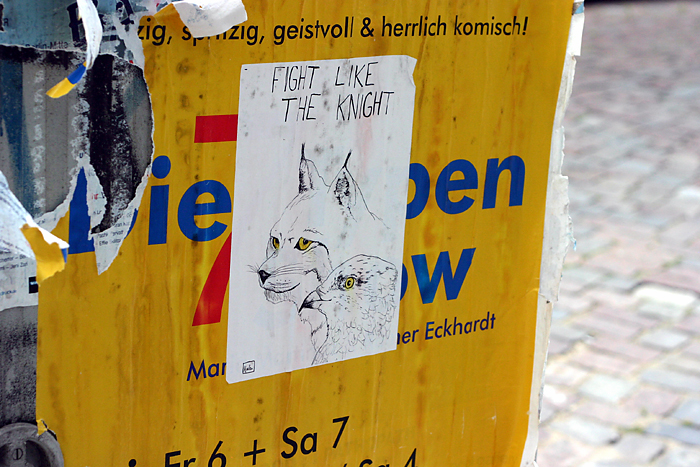 zig, spritzig, geistvoll & herrlich komisch!
FIGHT LIKE
THE KNIGHT
Die ben
7
ow
Mar ner Eckhardt
Fr 6 + Sa 7
Sa 4